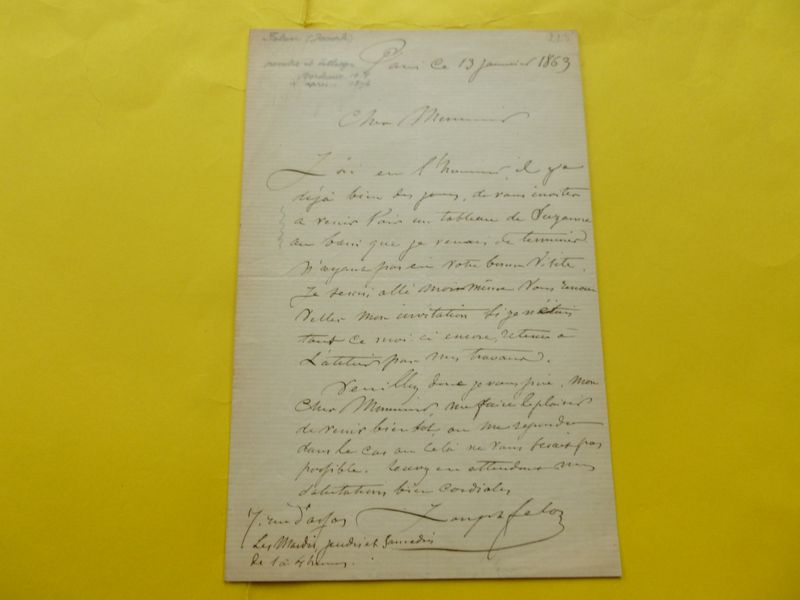 Felon (Joseph)
Paris ce 13 janvier 1863
Cher Monsieur
J'ai eu l'honneur, il y a
déjà bien des jours, de vous inviter
a venir voir un tableau de Suzanne
au bain que je venais de terminer.
N'ayant pas eu votre bonne visite,
Je serais allé moi même vous renou
veller mon invitation si je n'étais
tout ce mois ci encore, retenu à
L'atelier par mes travaux.
Veuillez donc je vous prie, mon
cher Monsieur me faire le plaisir
de venir bientôt, ou me repondre
dans le cas ou cela ne vous serait pas
possible. recevez en attendant mes
salutations bien cordiales
Joseph felon
7. rue d'assas
Les Mardis, jeudis et Samedis
de 1 à 4 heures.